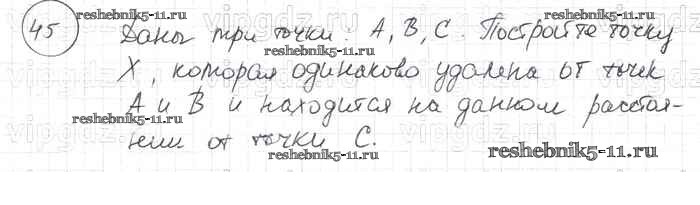 45 Даны три точки: A, B, C. Постройте точку
X, которая одинаково удалена от точек
A и B и находится на данном расстоя-
нии от точки C.
reshebnik5-11.ru
reshebnik5-11.ru
reshebnik5-11.ru
reshebnik5-11.ru
reshebnik5-11.ru
vipgdz.ru
vipgdz.ru
vipgdz.ru